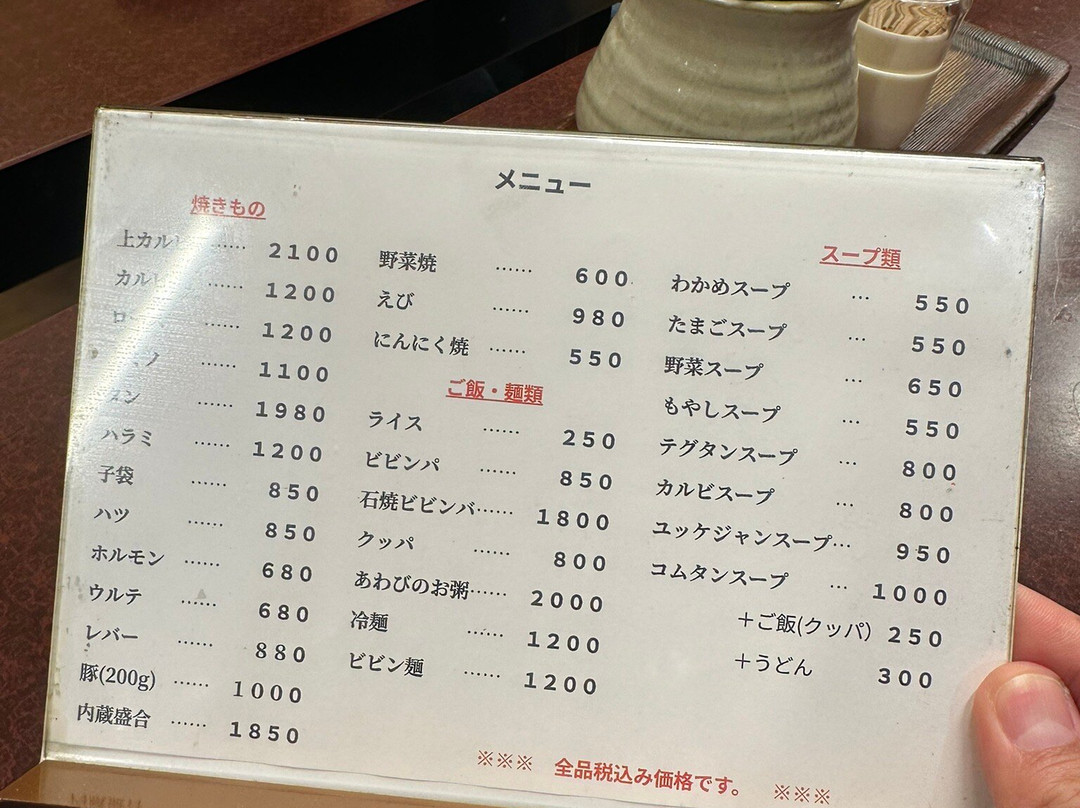 メニュー
焼きもの
上カル …… 2100
カル …… 1200
…… 1200
…… 1100
タン …… 1980
ハラミ …… 1200
子袋 …… 850
ハツ …… 850
ホルモン …… 680
ウルテ …… 680
レバー …… 880
豚(200g) …… 1000
内蔵盛合 …… 1850
野菜焼 …… 600
えび …… 980
にんにく焼 …… 550
ご飯・麺類
ライス …… 250
ビビンパ …… 850
石焼ビビンバ…… 1800
クッパ …… 800
あわびのお粥…… 2000
冷麺 …… 1200
ビビン麺 …… 1200
スープ類
わかめスープ … 550
たまごスープ … 550
野菜スープ … 650
もやしスープ … 550
テグタンスープ … 800
カルビスープ … 800
ユッケジャンスープ… 950
コムタンスープ … 1000
＋ご飯(クッパ) 250
＋うどん 300
※※※ 全品税込み価格です。 ※※※